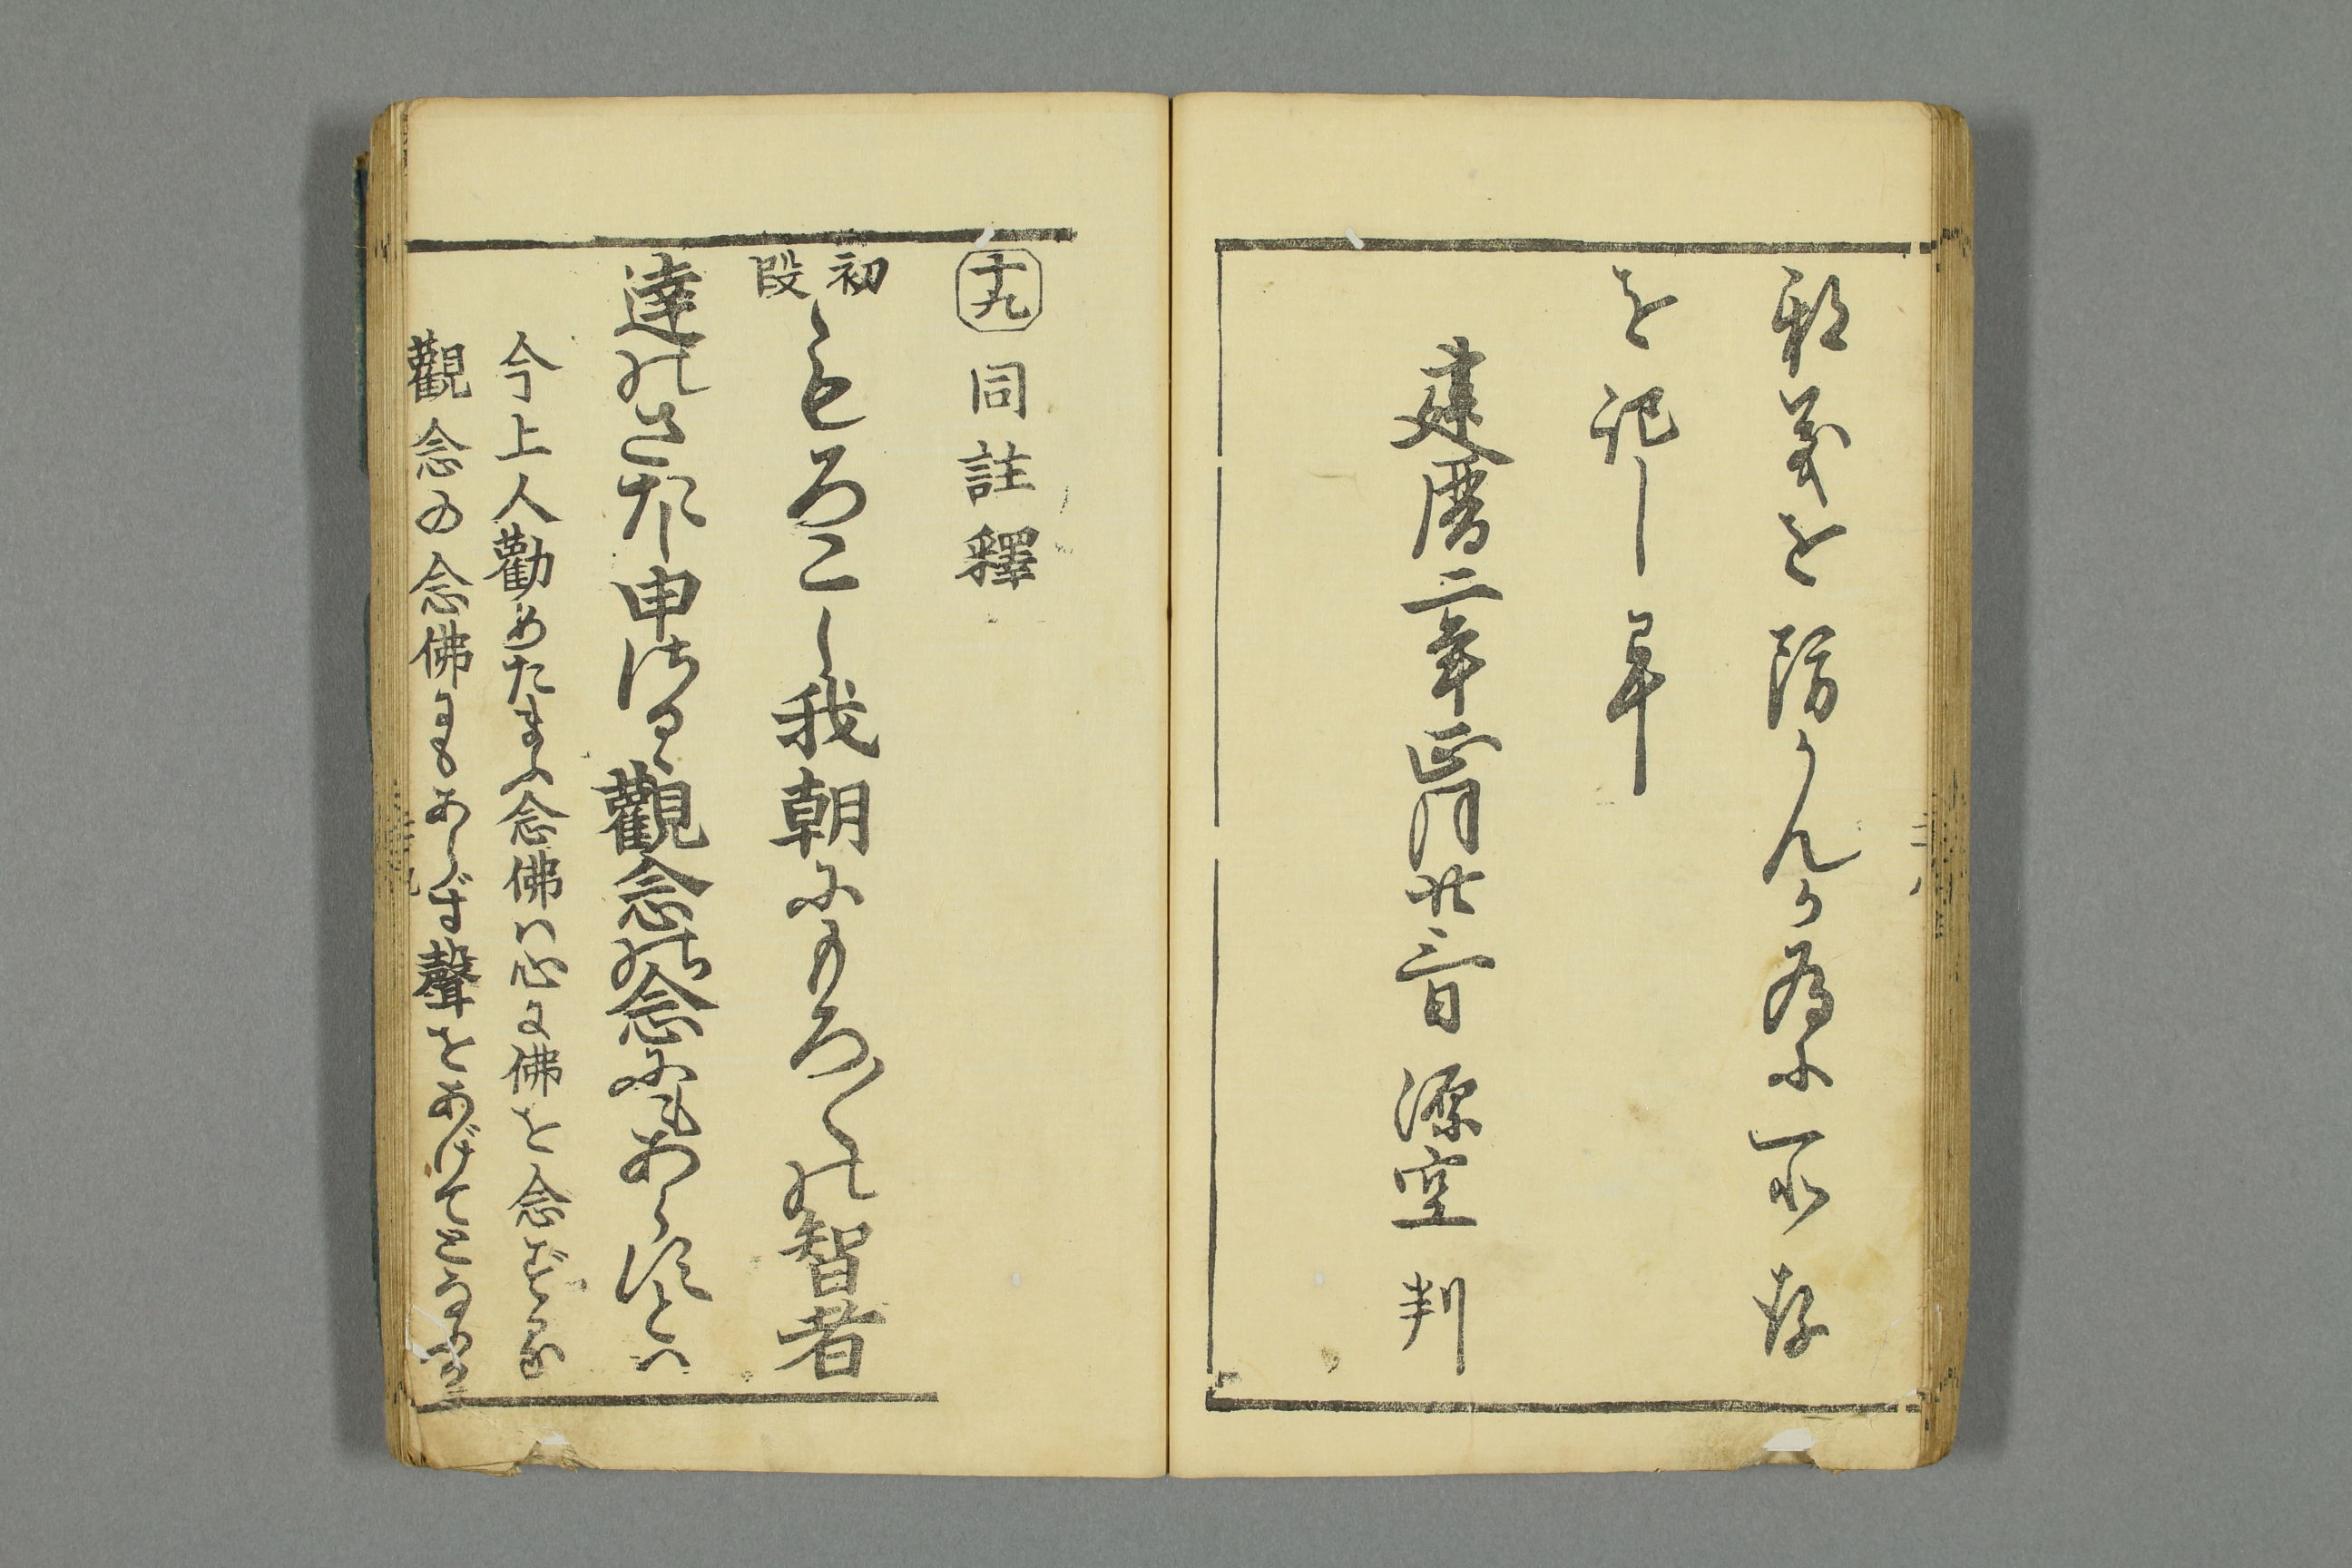 邪義を防かんか為に所存
を記し畢
建暦二年正月廿三日 源空 判
十九 同註釋
初段 もろこし我朝にもろ〳〵の智者
達のさたし申さるゝ觀念の念にもあらすとハ
今上人勸めたまふ念佛ハ心に佛を念ずる
觀念の念佛にもあらず聲をあげてとなふる